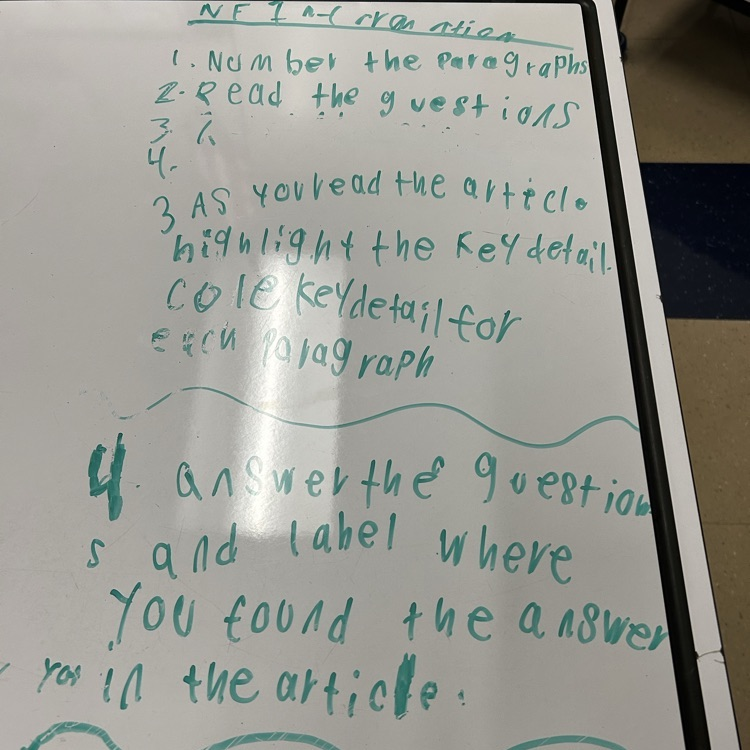 NF Information
1. Number the Paragraphs
2. Read the questions
3.
4.
3 As you read the article
highlight the key detail.
cole key detail for
each paragraph
4 answer the question
s and label where
you found the answer
in the article.